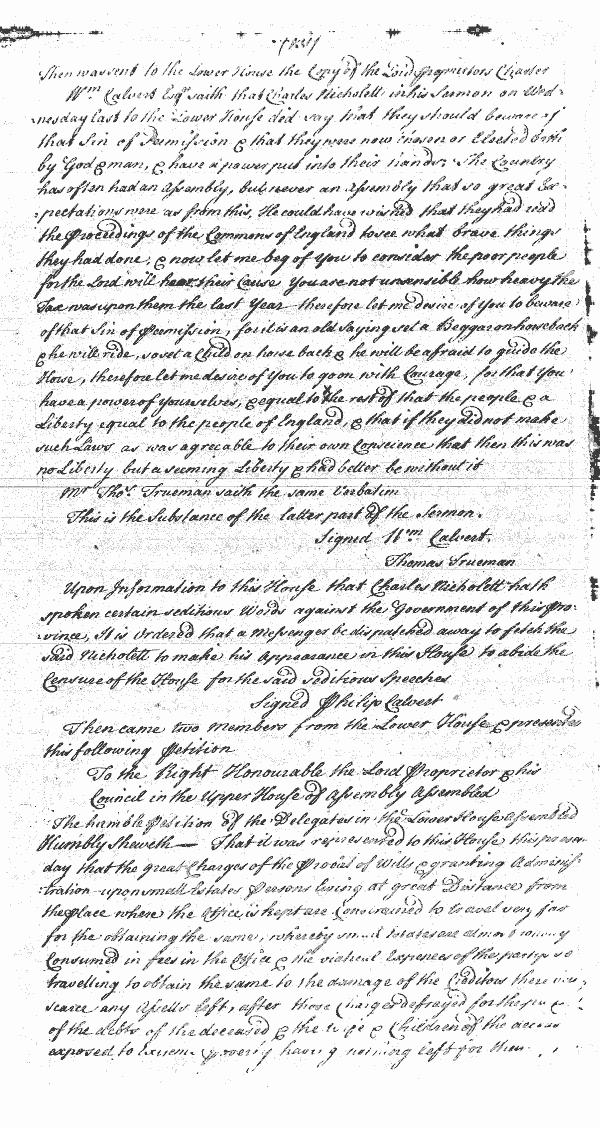 Then was sent to the Lower House the Copy of the Lord Proprietors Charter
Wm Calvert Esqr saith that Charles Nicholett in his Sermon on Wed-
nesday last to the Lower House did say that they should beware of
that Sin of Permission & that they were now chosen or Elected both
by God & man, & have a power put into their hands. The Country
has often had an Assembly, but never an Assembly that so great Ex-
pectations were as from this, He could have wished that they had read
the Proceedings of the Commons of England to see what brave things
they had done, & now let me beg of You to consider the poor people
for the Lord will hear their Cause You are not unsensible how heavy the
Tax was upon them the last Year therefore let me desire of You to beware
of that Sin of Permission, for it is an old saying set a Beggar on horseback
& he will ride, so set a Child on horse back & he will be afraid to guide the
Horse, therefore let me desire of You to go on with Courage, for that You
have a power of Yourselves, & equal to the rest of that the people & a
Liberty equal to the people of England, & that if they did not make
such Laws as was agreeable to their own Conscience that then this was
no Liberty but a seeming Liberty & had better be without it
Mr Thos. Trueman saith the same Verbatim
This is the Substance of the latter part of the Sermon.
Signed Wm Calvert.
Thomas Trueman
Upon Information to this House that Charles Nicholett hath
spoken certain seditious Words against the Government of this Pro-
vince, It is Ordered that a Messenger be dispatched away to fetch the
said Nicholett to make his Appearance in this House to abide the
Censure of the House for the said Seditious Speeches
Signed Philip Calvert
Then came two Members from the Lower House & presented
this following Petition
To the Right Honourable the Lord Proprietor & his
Council in the Upper House of Assembly Assembled
The humble Petition of the Delegates in the Lower House Assembled
Humbly Sheweth — That it was represented to this House this present
day that the great Charges of the Probat of Wills & granting Adminis-
tration upon small Estates Persons living at great Distance from
the place where the Office is kept are Constrained to travel very far
for the obtaining the same, whereby small Estates are almost wholly
Consumed in fees in the Office & the victual Expences of the partys so
travelling to obtain the same to the damage of the Creditors there being
scarce any Assetts left, after those Charges defrayed for the
of the debts of the deceased & the wife & Children of the deceased
exposed to Extreme poverty having nothing left for their